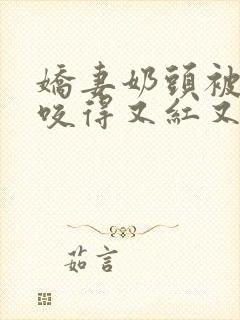 嬌妻奶頭被
咬得又紅又
茹言